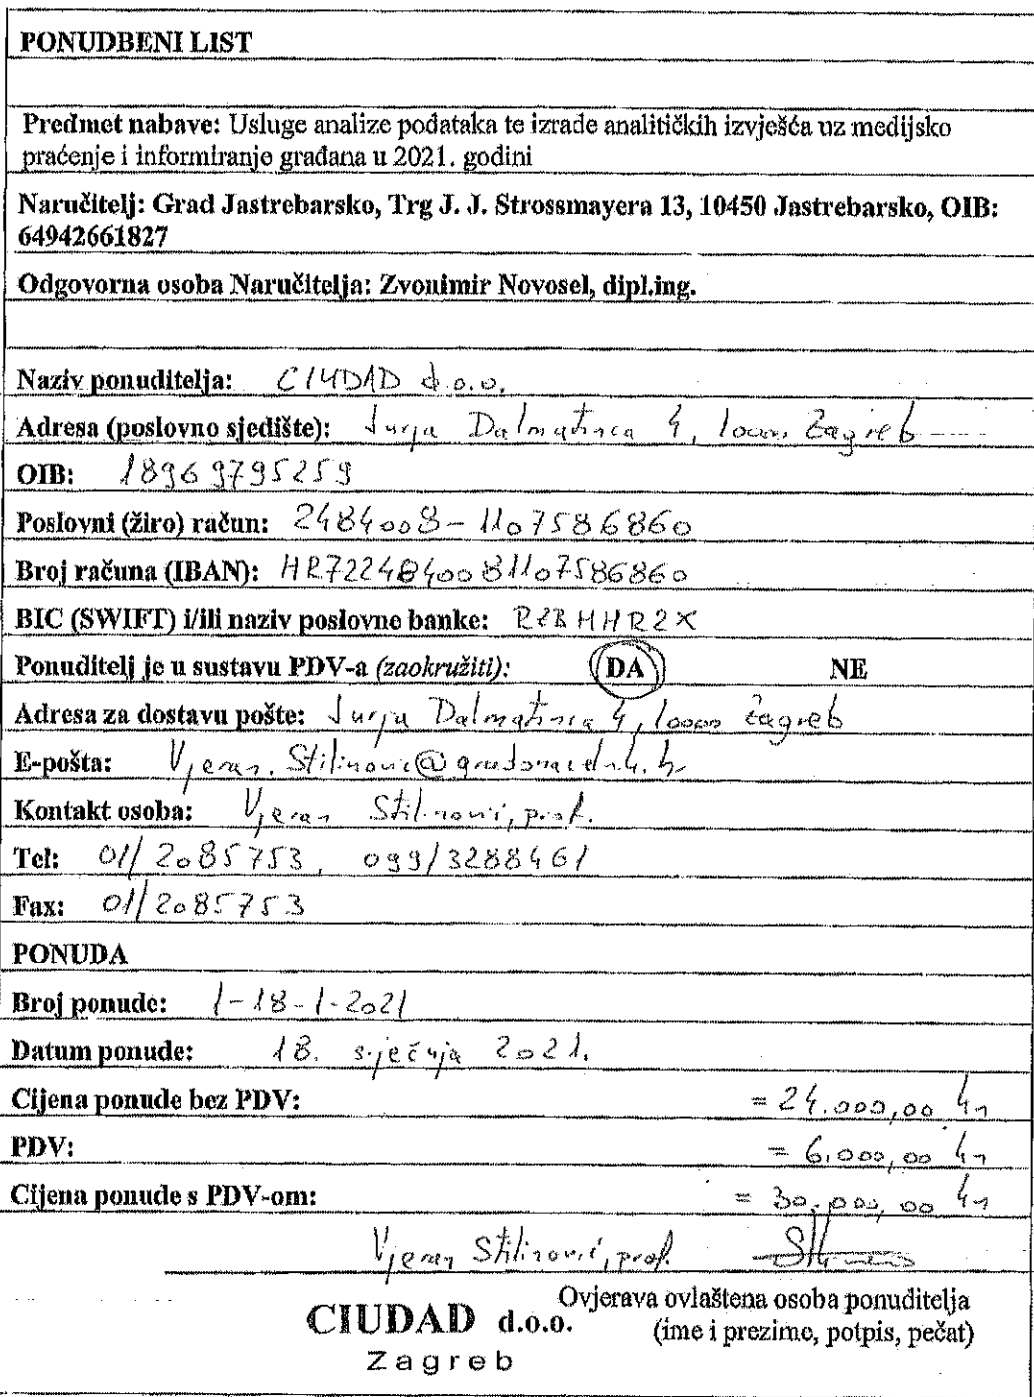 PONUDBENI LIST
Predmet nabave: Usluge analize podataka te izrade analitičkih izvješća uz medijsko
praćenje i informiranje građana u 2021. godini
Naručitelj: Grad Jastrebarsko, Trg J. J. Strossmayera 13, 10450 Jastrebarsko, OIB:
64942661827
Odgovorna osoba Naručitelja: Zvonimir Novosel, dipl.ing.
Naziv ponuditelja: CIUDAD d.o.o.
Adresa (poslovno sjedište): Jurja Dalmatinca 4, 10000 Zagreb
OIB: 18969795259
Poslovni (žiro) račun: 2484008-1107586860
Broj računa (IBAN): HR7224840081107586860
BIC (SWIFT) i/ili naziv poslovne banke: RZBHHR2X
Ponuditelj je u sustavu PDV-a (zaokružiti): DA NE
Adresa za dostavu pošte: Jurja Dalmatinca 4, 10000 Zagreb
E-pošta:
Kontakt osoba: Vjeran Stilinović, prof.
Tel: 01/2085753, 099/3288461
Fax: 01/2085753
PONUDA
Broj ponude: 1-18-1-2021
Datum ponude: 18. siječnja 2021.
Cijena ponude bez PDV: = 24.000,00 kn
PDV: = 6.000,00 kn
Cijena ponude s PDV-om: = 30.000,00 kn
Vjeran Stilinović, prof.
Ovjerava ovlaštena osoba ponuditelja
CIUDAD d.o.o. (ime i prezime, potpis, pečat)
Zagreb